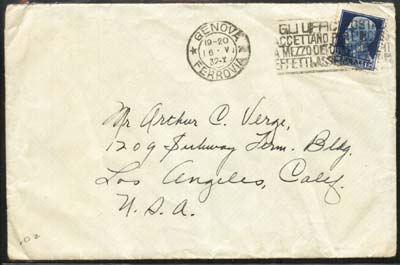 GENOVA
19-20
16·VI
32-X
FERROVIA
GLI UFFICI
ACCETTANO
A MEZZO DI
EFFETTI
Mr Arthur C. Verge,
1209 Subway Term. Bldg.
Los Angeles, Calif.
U.S.A.
.02